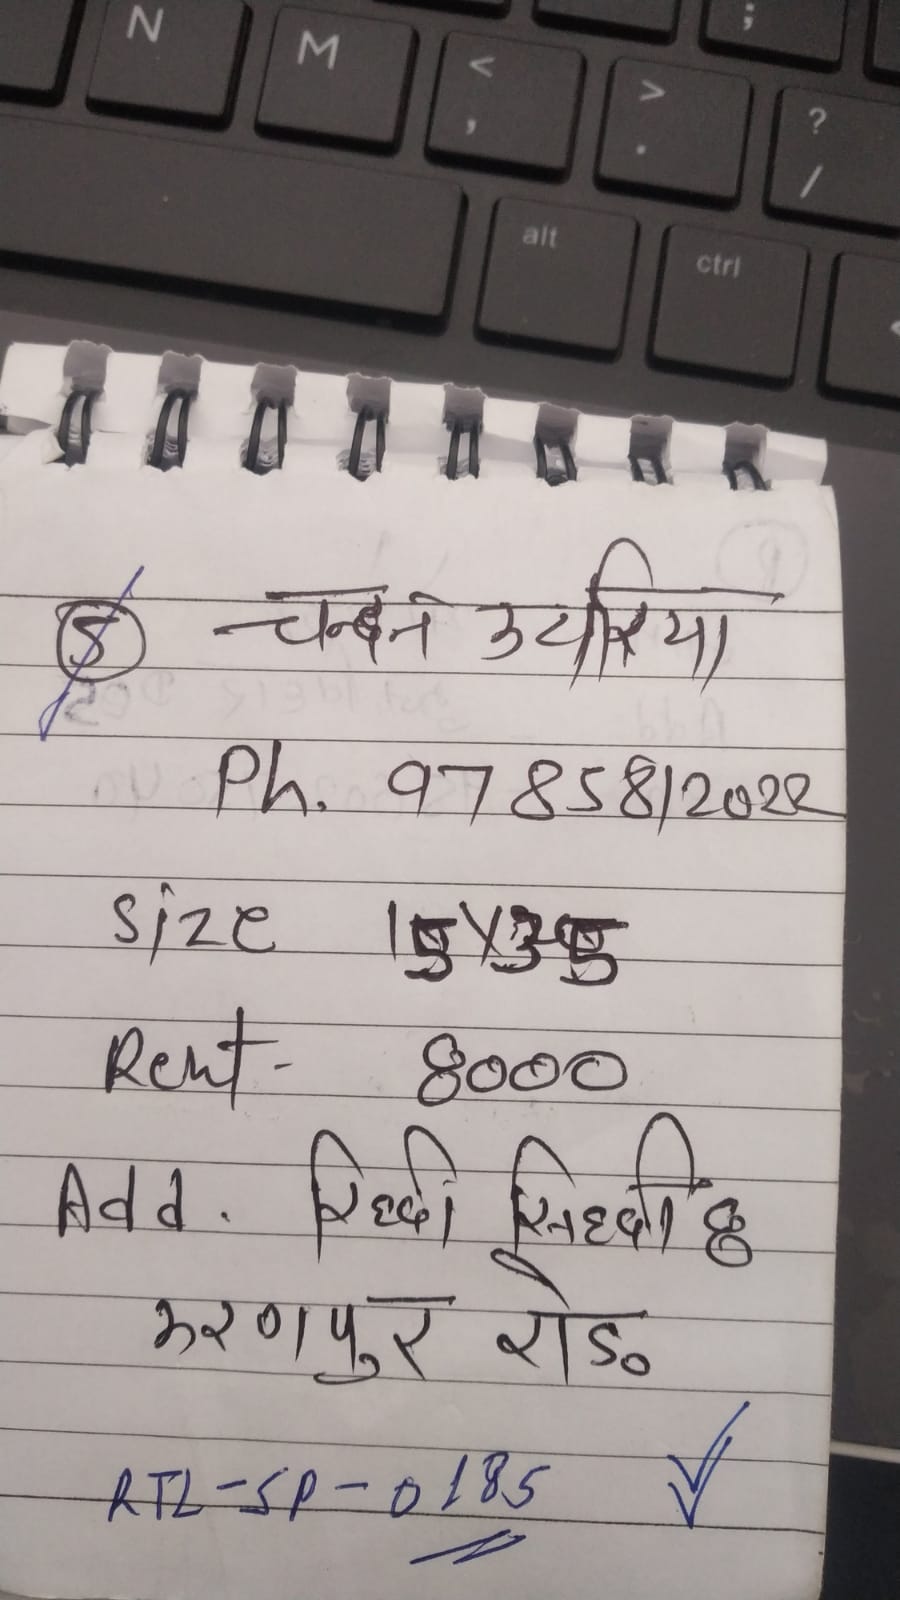 N
M
<
,
>
.
?
/
;
alt
ctrl
5 चन्दन
Ph. 9785812022
Size 15X35
Rent - 8000
Add. रिध्दी सिध्दी 8
करणपुर रोड०
RTL-SP-0185